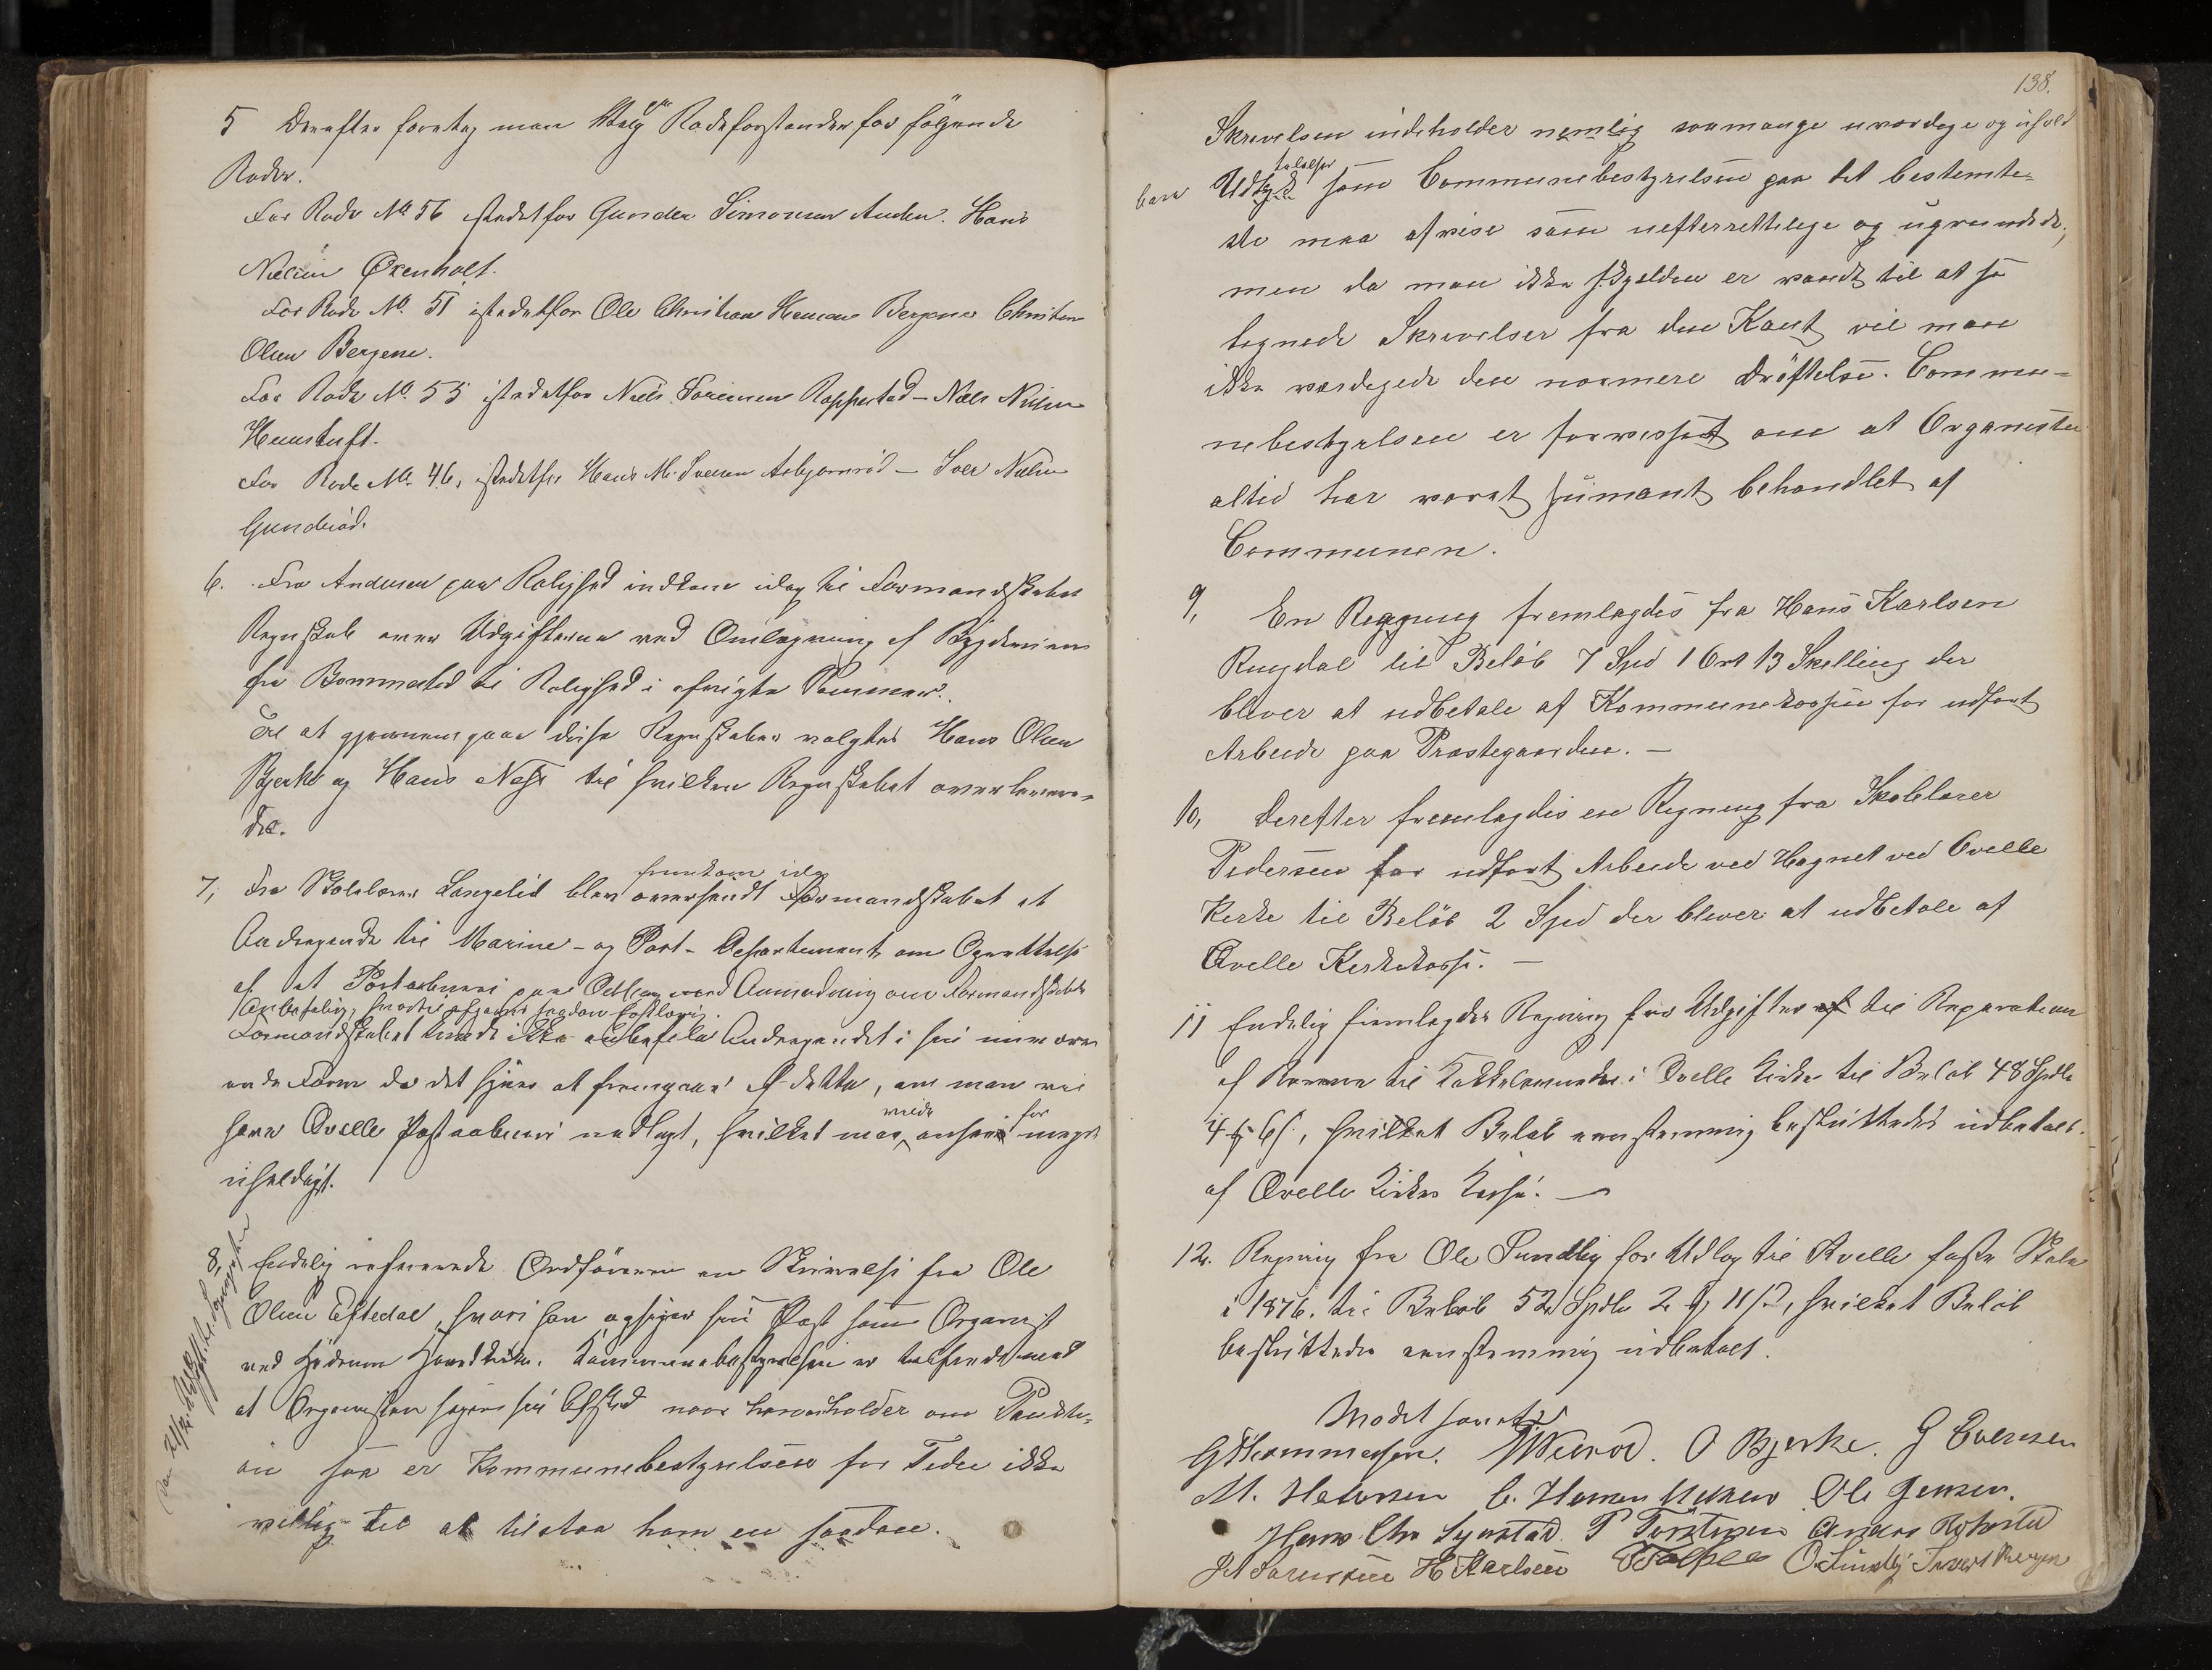 5 Derefter foretog man Valg af Rodeforstander for følgende
Roder.
For Rode No 56 istedetfor Gunder Simonsen Aulen. Hans
Nielsen Øxenholt.
For Rode No. 51 istedetfor Ole Christian Hansen Bergene Christen
Olsen Bergene.
For Rode No. 55 istedetfor Niels Sørensen Roppestad – Niels Nielsen
Huustuft.
For Rode No. 46, istedetfor Hans M. Iversen Asbjørnrød – Iver Nielsen
Gundersød.
6. Fra Andersen paa Rolighed indkom idag til Formandskabet
Regnskab over Udgifterne ved Omlægning af Bygdeveien
fra Bommestad til Rolighed i afvigte Sommer.
Til at gjennemgaae disse Regnskaber valgtes Hans Olsen
Bjerke og Hans Næss til hvilken Regnskabet overlevere-
des.
fremkom idag
7, Fra Skolelærer Langelid blev oversendt Formandskabet et
Andragende til Marine- og Post-Departement om Oprettelse
af et Postaabneri paa Odberg med Anmodning om Formandskabets
Anbefaling, hvortil afgaves saadan Erklæring.
Formandskabet kunde ikke anbefale Andragendet i sin nuværen
ende Form da det synes at fremgaae af dette, om man vil
have Qvelle Postaabneri nedlagt, hvilket man maa ansee for meget
uheldigt.
Den 21/12 Udskr. til Sogneprest
8, Endelig refererede Ordføreren en Skrivelse fra Ole
Olsen Eftedal, hvori han opsiger sin Post som Organist
ved Hedrum Hovedkirke. Kommunebestyrelsen er tilfreds med
at Organisten søger sin Afsked naar han anholder om Pensi-
on saa er Kommunebestyrelsen for Tiden ikke
villig til at tilstaa ham en saadan.
138.
Skrivelsen indeholder nemlig saamange uværdige og uhold
talelser
bare Udtryk som Communebestyrelsen paa det bestemte-
ste maa afvise som uefterrettelige og ugrundede,
men da man ikke sjelden er vandt til at se
lignede Skrivelser fra den Kant vil man
ikke værdigede den nærmere Drøftelse. Commu-
nebestyrelsen er forvisset om at Organisten
altid har været humant behandlet af
Communen.
9, En Regning fremlagdes fra Hans Karlsen
Rugdal til Beløb 7 Spd 1 Ort 13 Skelling der
bliver at udbetale af Kommunekassen for udført
Arbeide paa Præstegaarden. –
10, Derefter fremlagdes en Regning fra Skolelærer
Pedersen for udført Arbeide ved Hegnet ved Qvelle
Kirke til Beløb 2 Spd der bliver at udbetale af
Qvelle Kirkekasse. –
11 Endelig fremlagdes Regning for Udgifter af til Reparationer
af Rammen til Tabletavlen i Qvelle Kirke til Beløb 48 Spdlr
4 ₰ 6 s., hvilket Beløb eenstemmig besluttedes udbetalt
af Qvelle Kirkes Kasse. –
12. Regning fra Ole Sundby for Udlæg til Kvelle faste Skole
i 1876. til Beløb 52 Spdlr 2 ₰ 11 s, hvilket Beløb
besluttedes eenstemmig udbetalt.
Mødet hævet
G Thommesen. Weierød. O Bjerke. J Evensen
M. Halvorsen C. Hansen Ole Jensen.
Hans Chr Lynstad P Torstensen Anders Robertsd
Sørensen H Karlsen O. Sundby Iver Bergen